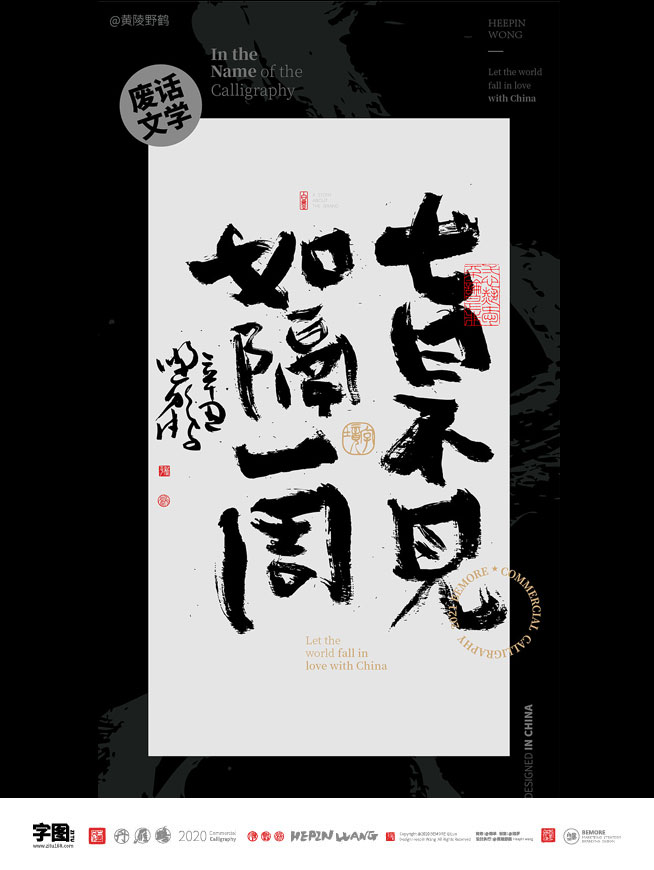 @黄陵野鹤
In the
Name of the
Calligraphy
HEEPIN
WONG
Let the world
fall in love
with China
废话
文学
七日不见
如隔一周
Let the
world fall in
love with China
COMMERCIAL CALLIGRAPHY
DESIGNED IN CHINA
字图
www.zitu168.com
2020 Commercial
Calligraphy
HEPIN WANG
REMORE